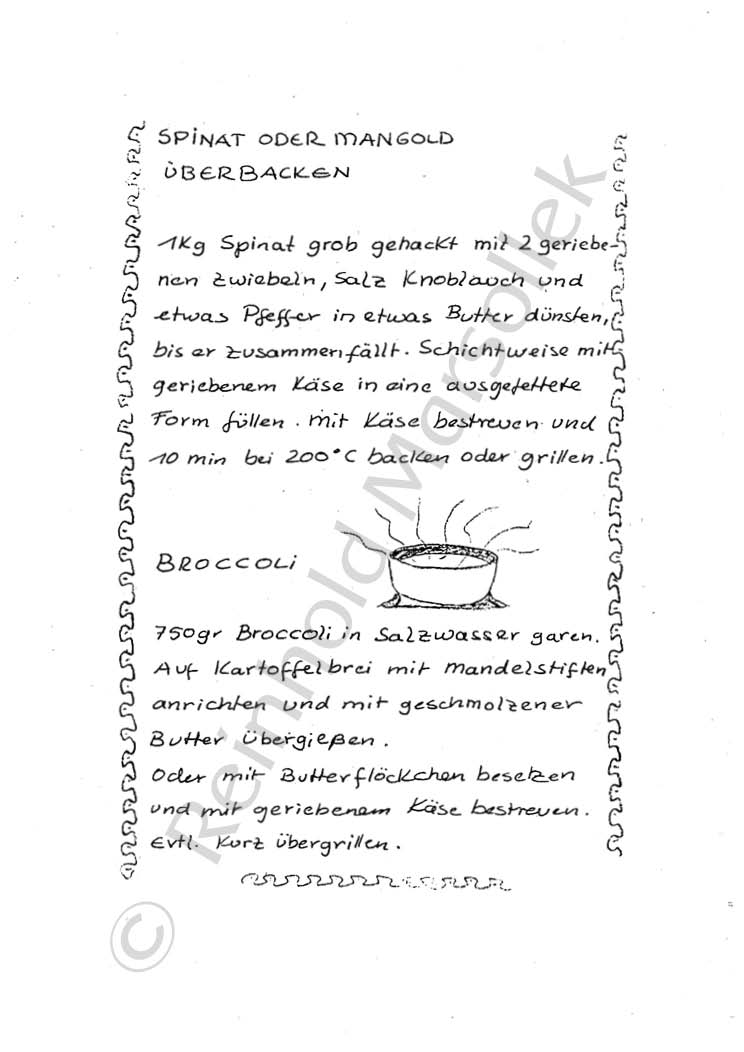 SPINAT ODER MANGOLD
ÜBERBACKEN
1Kg Spinat grob gehackt mit 2 geriebe-
nen Zwiebeln, Salz Knoblauch und
etwas Pfeffer in etwas Butter dünsten,
bis er zusammenfällt. Schichtweise mit
geriebenem Käse in eine ausgefettete
Form füllen. Mit Käse bestreuen und
10 min bei 200°C backen oder grillen.
BROCCOLI
750gr Broccoli in Salzwasser garen.
Auf Kartoffelbrei mit Mandelstiften
anrichten und mit geschmolzener
Butter übergießen.
Oder mit Butterflöckchen besetzen
und mit geriebenem Käse bestreuen.
Evtl. Kurz übergrillen.
© Reinhold Marsollek